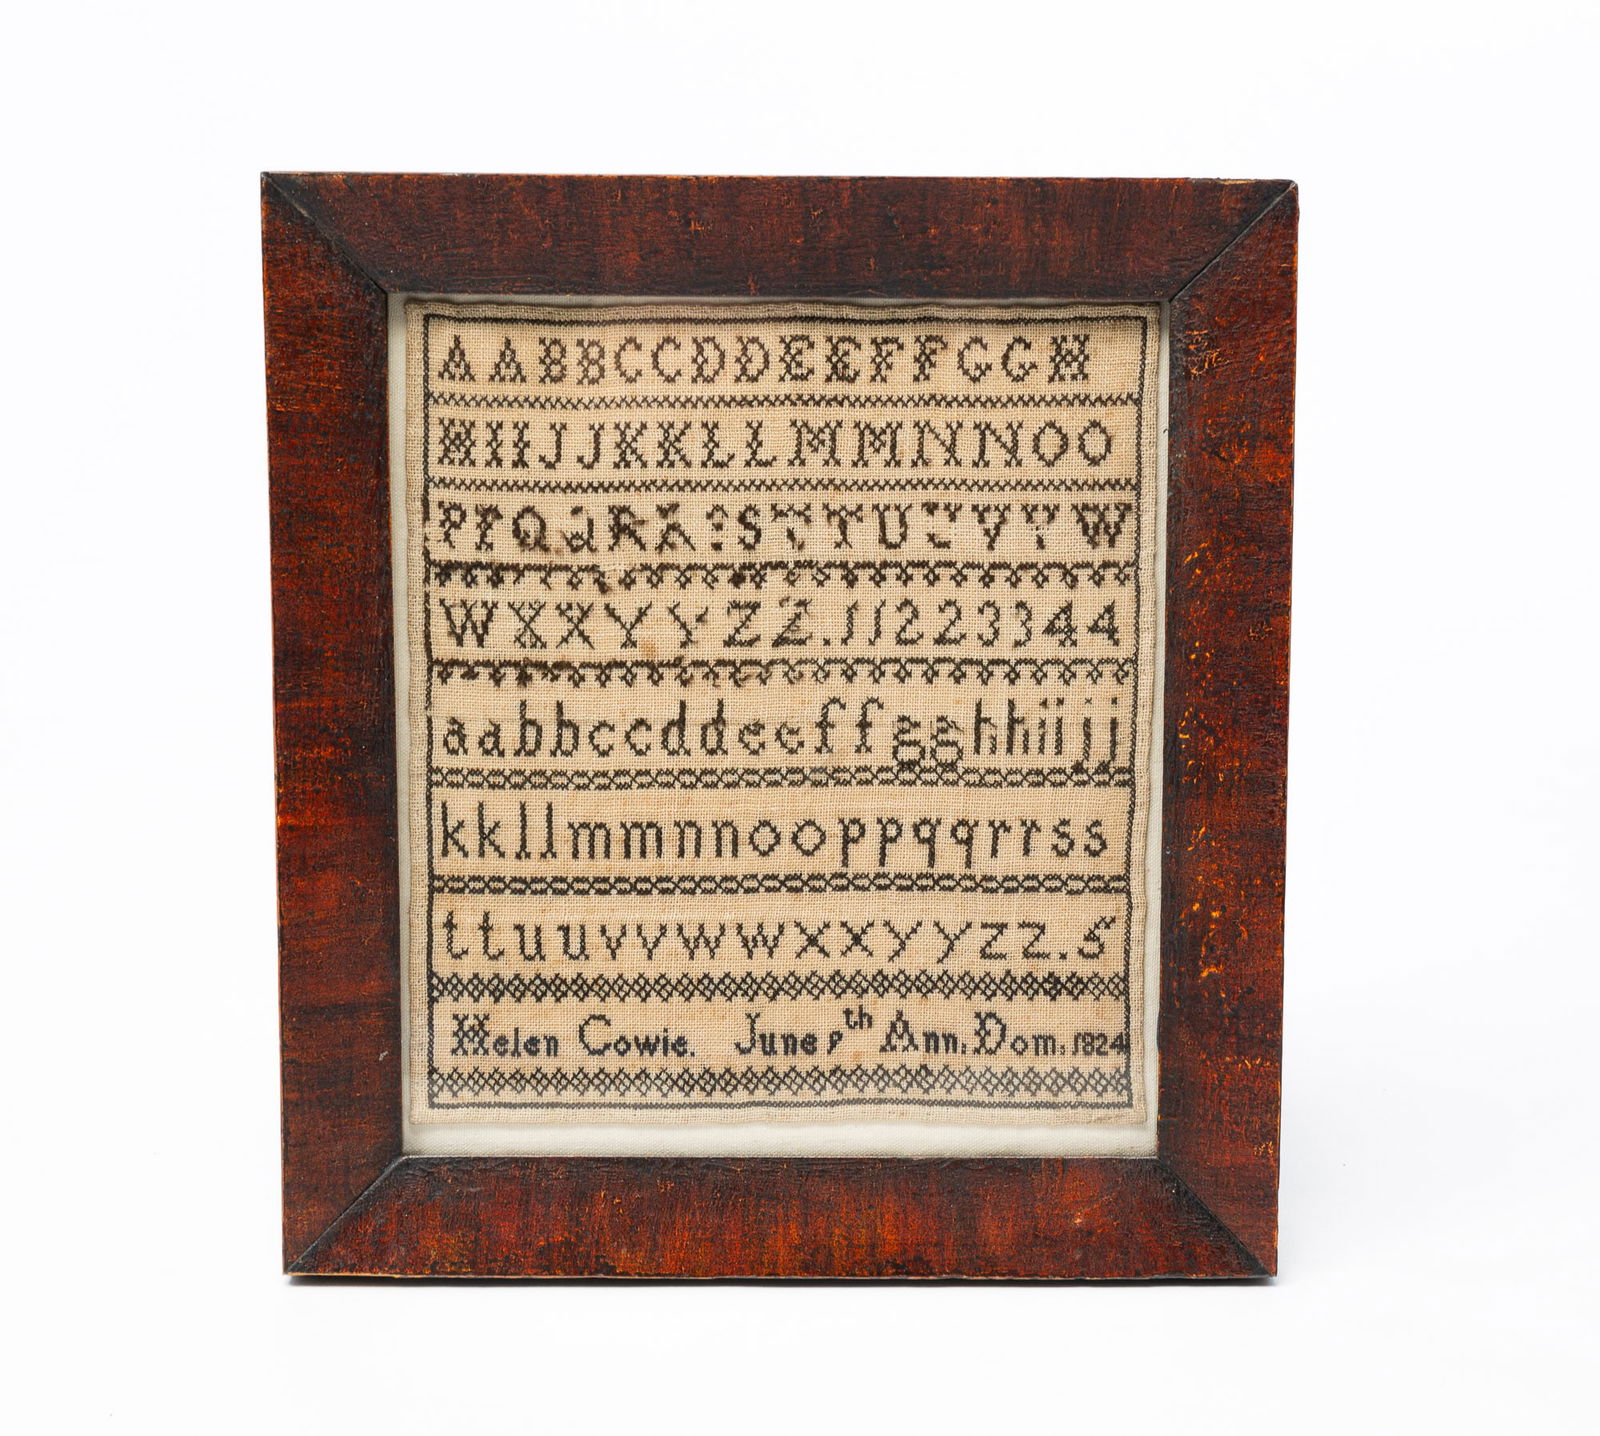 AABBCCDDEEFFGGH
HIIJJKKLLMMNNOO
PPQQRRSSTTUUVVW
WXXYYZZ.11223344
aabbccddeeffgghhiijj
kkllmmnnooppqqrrss
ttuuvvwwxxyyzz.5
Helen Cowie. June 9th Ann. Dom. 1824